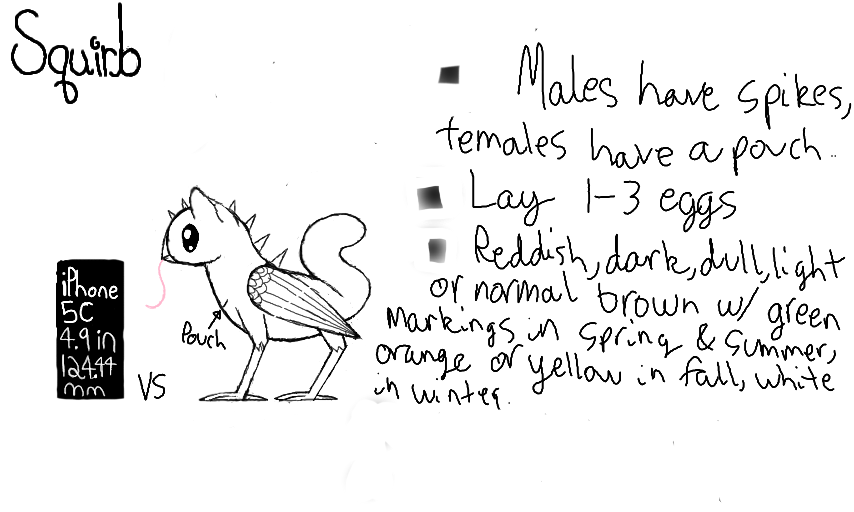 Squirb
Males have spikes,
temales have a pouch.
Lay 1-3 eggs
Reddish, dark, dull, light
or normal brown w/ green
Markings in Spring & Summer,
orange or yellow in fall, white
in winter.
Pouch
iPhone
5C
4.9 in
124.44
mm
VS